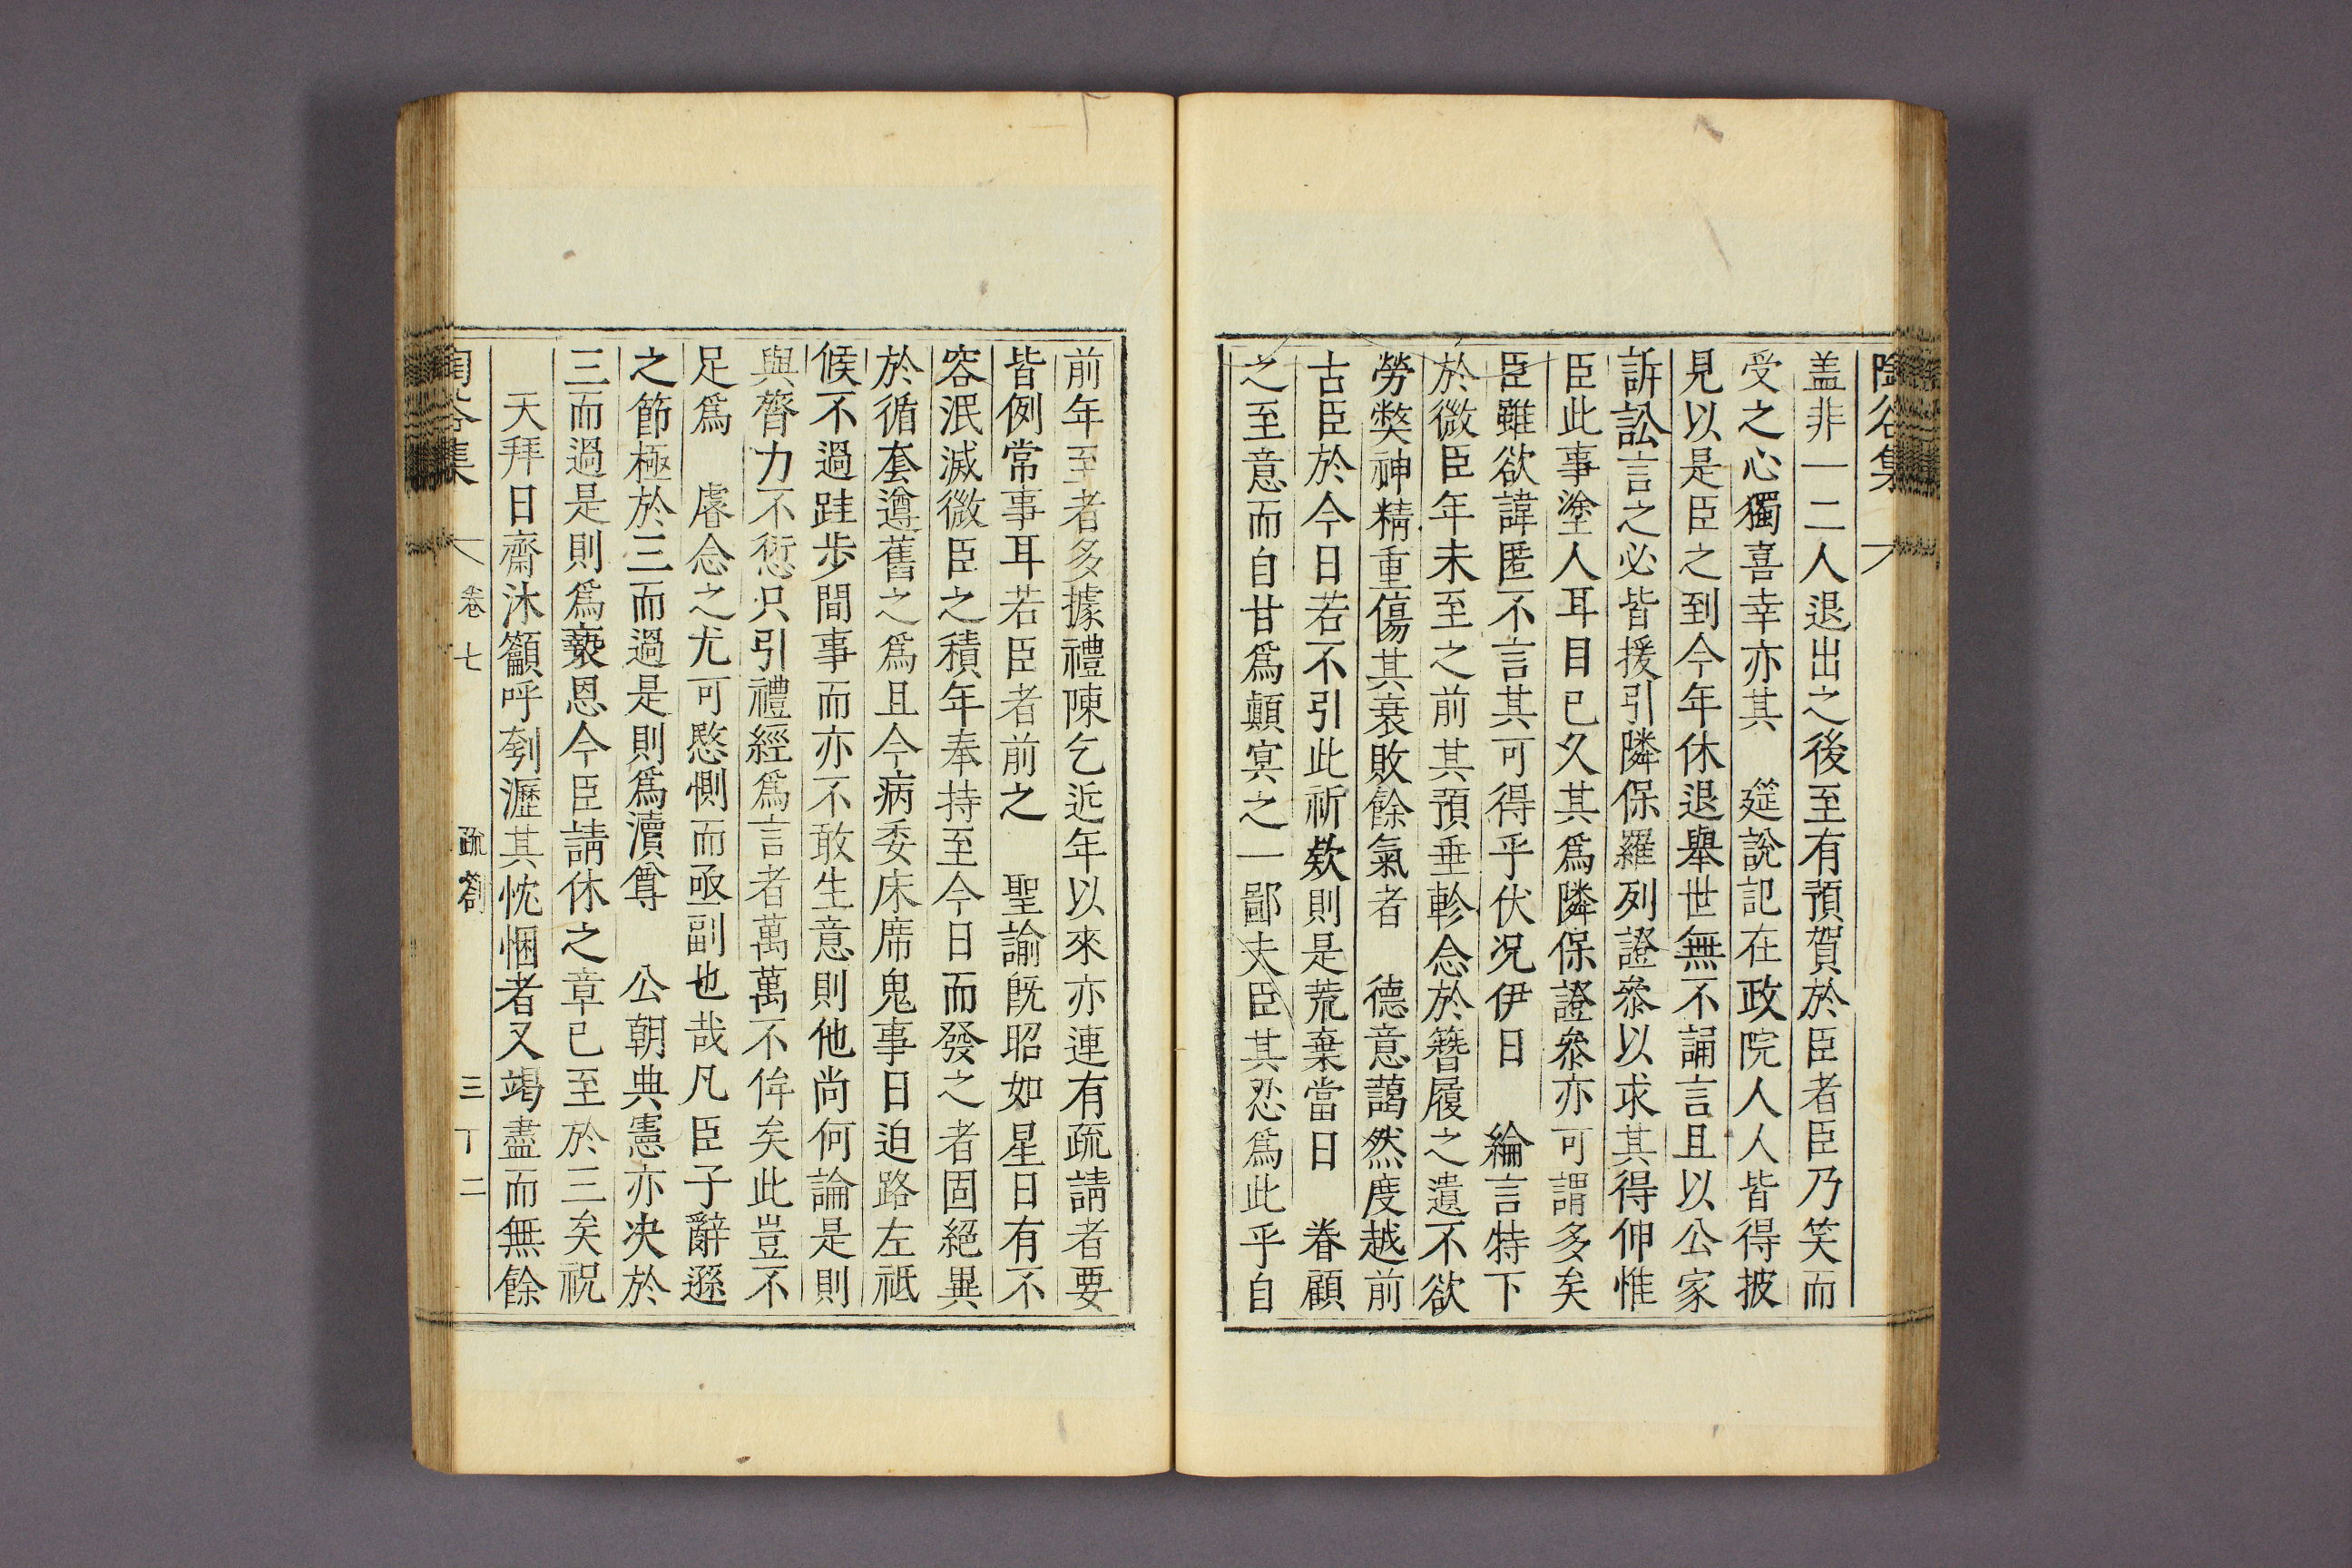 陶谷集
盖非一二人退出之後至有預賀於臣者臣乃笑而
受之心獨喜幸亦其 筵說記在政院人人皆得披
見以是臣之到今年休退舉世無不誦言且以公家
訴訟言之必皆援引隣保羅列證叅以求其得伸惟
臣此事塗人耳目已久其爲隣保證叅亦可謂多矣
臣雖欲諱匿不言其可得乎伏况伊日 綸言特下
於微臣年未至之前其預垂軫念於簪履之遺不欲
勞獘神精重傷其衰敗餘氣者 德意藹然度越前
古臣於今日若不引此祈欸則是荒棄當日 眷顧
之至意而自甘爲顚㝠之一鄙夫臣其忍爲此乎自
前年至者多據禮陳乞近年以來亦連有疏請者要
皆例常事耳若臣者前之 聖諭旣昭如星日有不
容泯滅微臣之積年奉持至今日而發之者固絕異
於循套遵舊之爲且今病委床席鬼事日迫路左祗
候不過跬步間事而亦不敢生意則他尚何論是則
與膂力不愆只引禮經爲言者萬萬不侔矣此豈不
足爲 睿念之尤可愍惻而亟副也哉凡臣子辭遜
之節極於三而過是則爲瀆尊 公朝典憲亦决於
三而過是則爲褻恩今臣請休之章已至於三矣祝
天拜日齋沐籲呼刳瀝其忱悃者又竭盡而無餘
陶谷集 卷七 疏劄 三丁二